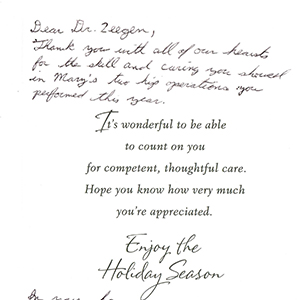 Dear Dr. Zeegen,
Thank you with all of our hearts
for the skill and caring you showed
in Mary's two hip operations you
performed this year.
It's wonderful to be able
to count on you
for competent, thoughtful care.
Hope you know how very much
you're appreciated.
Enjoy the
Holiday Season